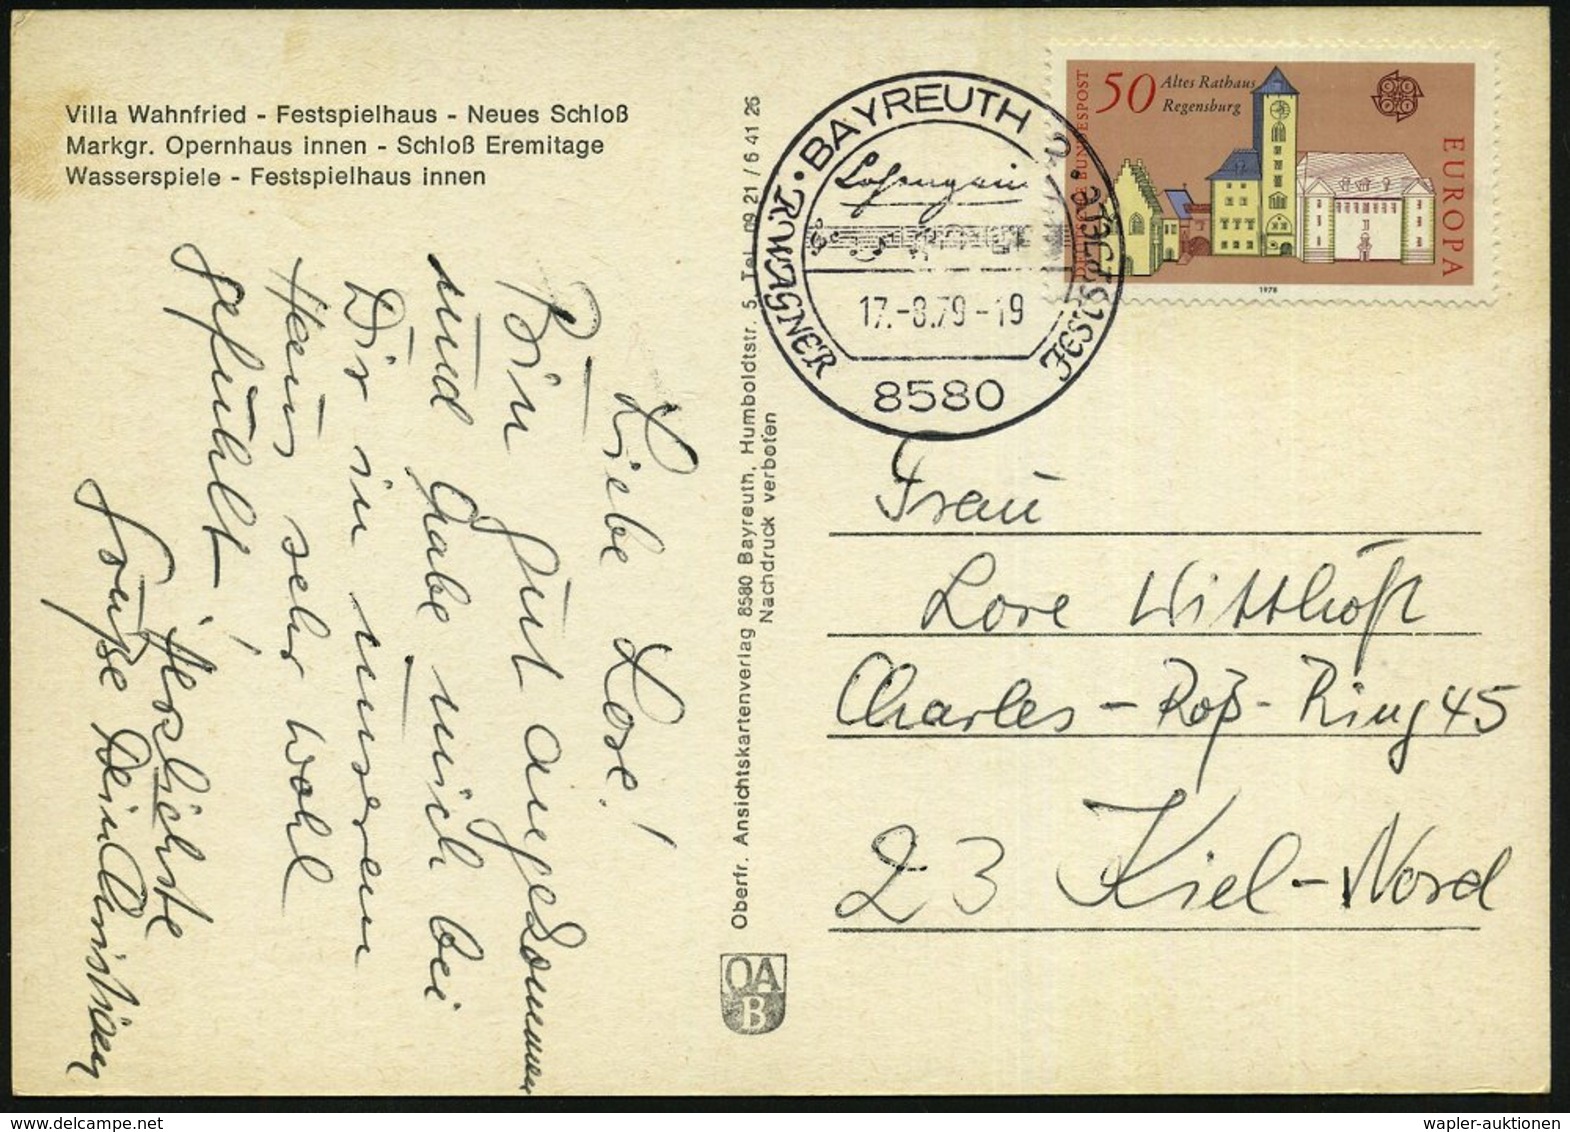 Villa Wahnfried - Festspielhaus - Neues Schloß
Markgr. Opernhaus innen - Schloß Eremitage
Wasserspiele - Festspielhaus innen
Liebe Lore!
Bin gut angekommen
und habe mich bei
Dir in unserem
Heim sehr wohl
gefühlt! Herzlichste
Grüße Dein Christian
Oberfr. Ansichtskartenverlag 8580 Bayreuth, Humboldtstr. 5, Tel. 09 21 / 6 41 26
Nachdruck verboten
OA
B
BAYREUTH 2
R. WAGNER FESTSPIELE
Lohengrin
17.-8.79-19
8580
DEUTSCHE BUNDESPOST
50 Altes Rathaus
Regensburg
EUROPA
1978
Frau
Lore Witthöft
Charles-Roß-Ring 45
23 Kiel-Nord
wapler-auktionen